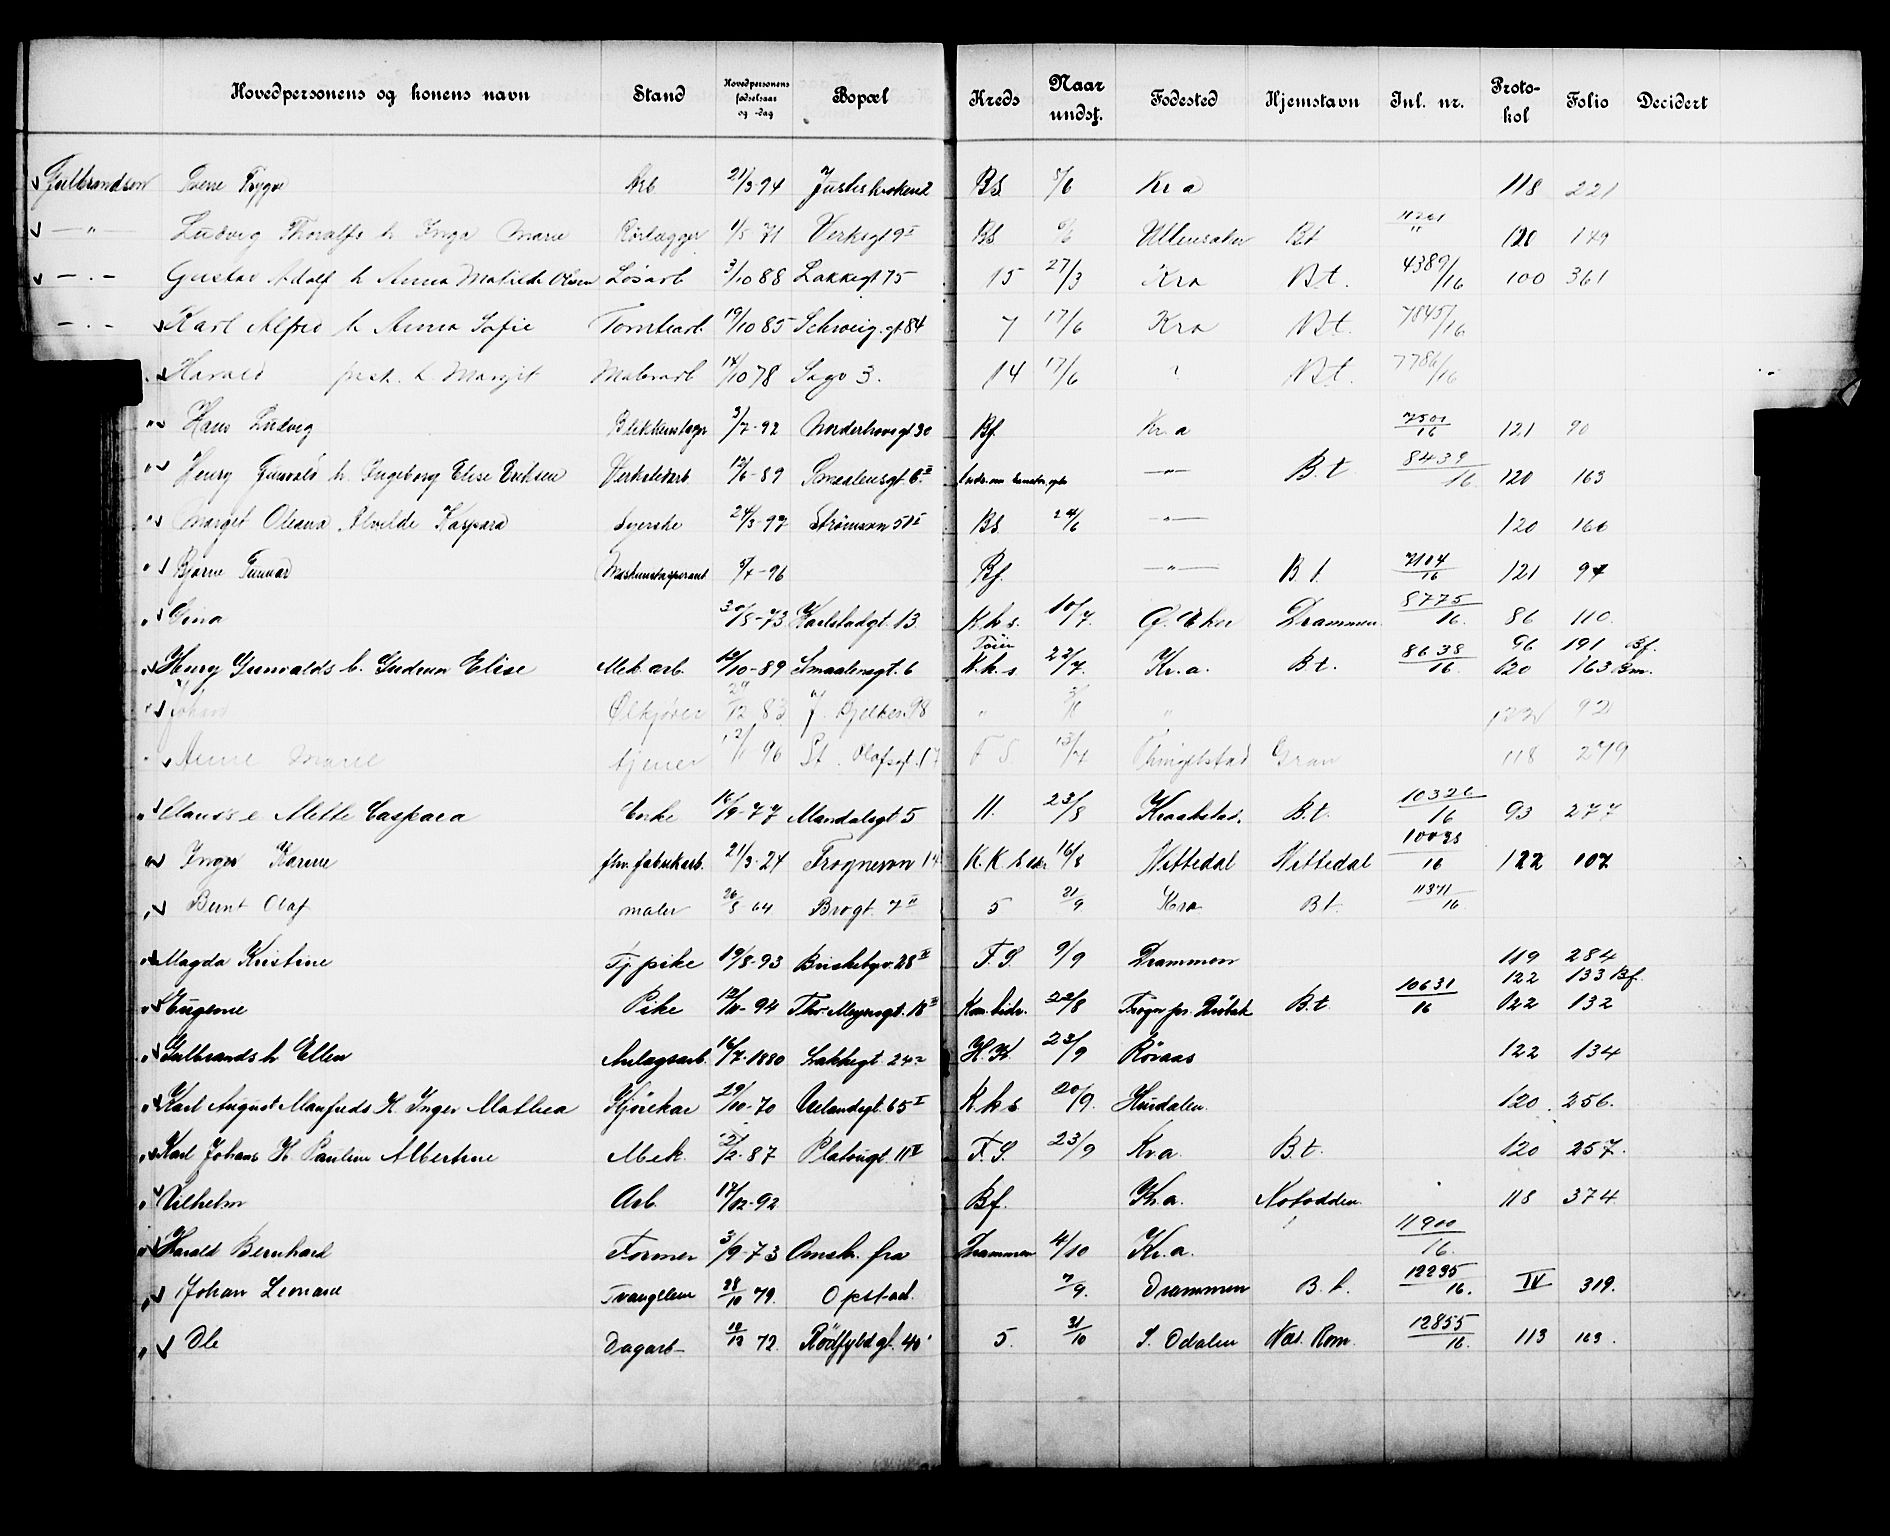 Hovedpersonens og konens navn Stand Hovedpersonens fødselsaar og -dag Bopæl Kreds Naar undst. Fødested Hjemstavn Inl. nr. Proto-kol Folio Decidert
Gulbrandsen Sverre Trygve Arb 21/3 94 BS 5/6 Kra 118 221
— " — Ludvig Thoralfs h Inga Marie Rørlægger 1/5 71 Verksgt 9 II BS 6/6 Ullensaker Bt 120 149
— " — Gustav Adolf h Anna Matilde Olsen Løsarb 3/10 88 Lakkegt 75 15 27/3 Kra Bt. 4389/16 100 361
— " — Karl Alfred h Anna Sofie Tomtearb. 19/10 85 Schweig.gt 84 7 17/6 Kra Bt. 7845/16
" Harald h Margit Malerarb 14/10 78 Sagv 3. 14 17/6 " Bt. 7786/16
" Hans Ludvig 3/7-92 Norderhovsgt 30 Bf. Kr.a 7501/16 121 90
" Henry h. Ingeborg Elise Eriksen Verkstedarb. 12/6-89 Smaalensgt 6 II — " — B.t. 8439/16 120 163
" Margit Oleana Alvilde Kaspara Syerske 24/3-97 Strømsvn 51 I BS. 24/6 — " — 120 160
" Bjarne Gunnar Maskinistaspirant 5/4-96 Bf. — " — B.t. 7104/16 121 94
" Gina 30/8-73 Karlstadgt. 13 K.k.s. 10/7. Ø. Eker Drammen 8775/16. 86 110.
" Henry Gunvalds h. Gudrun Elise Mek arb. 12/10-89 Smaalensgt. 6 Tøien K.k.s. 22/7. Kr.a. Bt. 8638/16. 96 191 Bf. 120 163 Bm.
" Johan Ølkjører 29/12 83 J. Bjelkes 98 " " 92
" Anne Marie tjener 12/11 96 St. Olafsgt. 17 F.S. 13/4 Thingelstad Gran 118 249
" Clauss e Mette Caspara Enke 16/9-77 Mandalsgt 5 11. 23/8 Kraakstad. B.t. 10326/16 93 277
" Inga Karine fhv. fabrikarb. 21/3-24 Frognervn 14 16/8 Nittedal Nittedal 16 122 107
" Bernt Olaf maler 26/8 64 Brogt. 7 II 5 21/9 Kra Bt. 11371/16
" Magda Kristine Tj. pike 19/8-93 Briskebyv. 28 IV F.S. 9/9 Drammen 119 284
" Eugenie Pike 12/11-94 Thv. Meyersgt. 18 III Kom. bidr. 22/8 Frogn pr. Drøbak B.t 10631/16 122 133 Bf. 122 132
" Gulbrands h Ellen Anlægsarb. 16/7-1880 Lakkegt 24 H.K. 23/9 Røraas 122 134
" Karl August Manfreds H Inger Mathea Kjørekar 29/10-70 Uelandsgt. 65 I K.k.s 20/9. Hurdalen. 120. 256.
" Karl Johans H Pauline Albertine Mek. 21/2-87 Platougt. 11 IV F.S. 23/9 Kr.a. B.t. 120 257.
" Vilhelm Arb. 17/12-92 Bf. Kr.a. Notodden. 118 374
" Harald Bernhard Former 3/9-73 Omst. fra Drammen 4/10 Kr.a. 11900/16.
" Johan Leonard 28/10 79. Opstad. 7/9. Drammen B.t. 12295/16. IV 319.
" Ole Dagarb- 72. Rødfyldgt. 40 5. 31/10 S. Odalen Nes. Rom. 12855/16. 113 163.